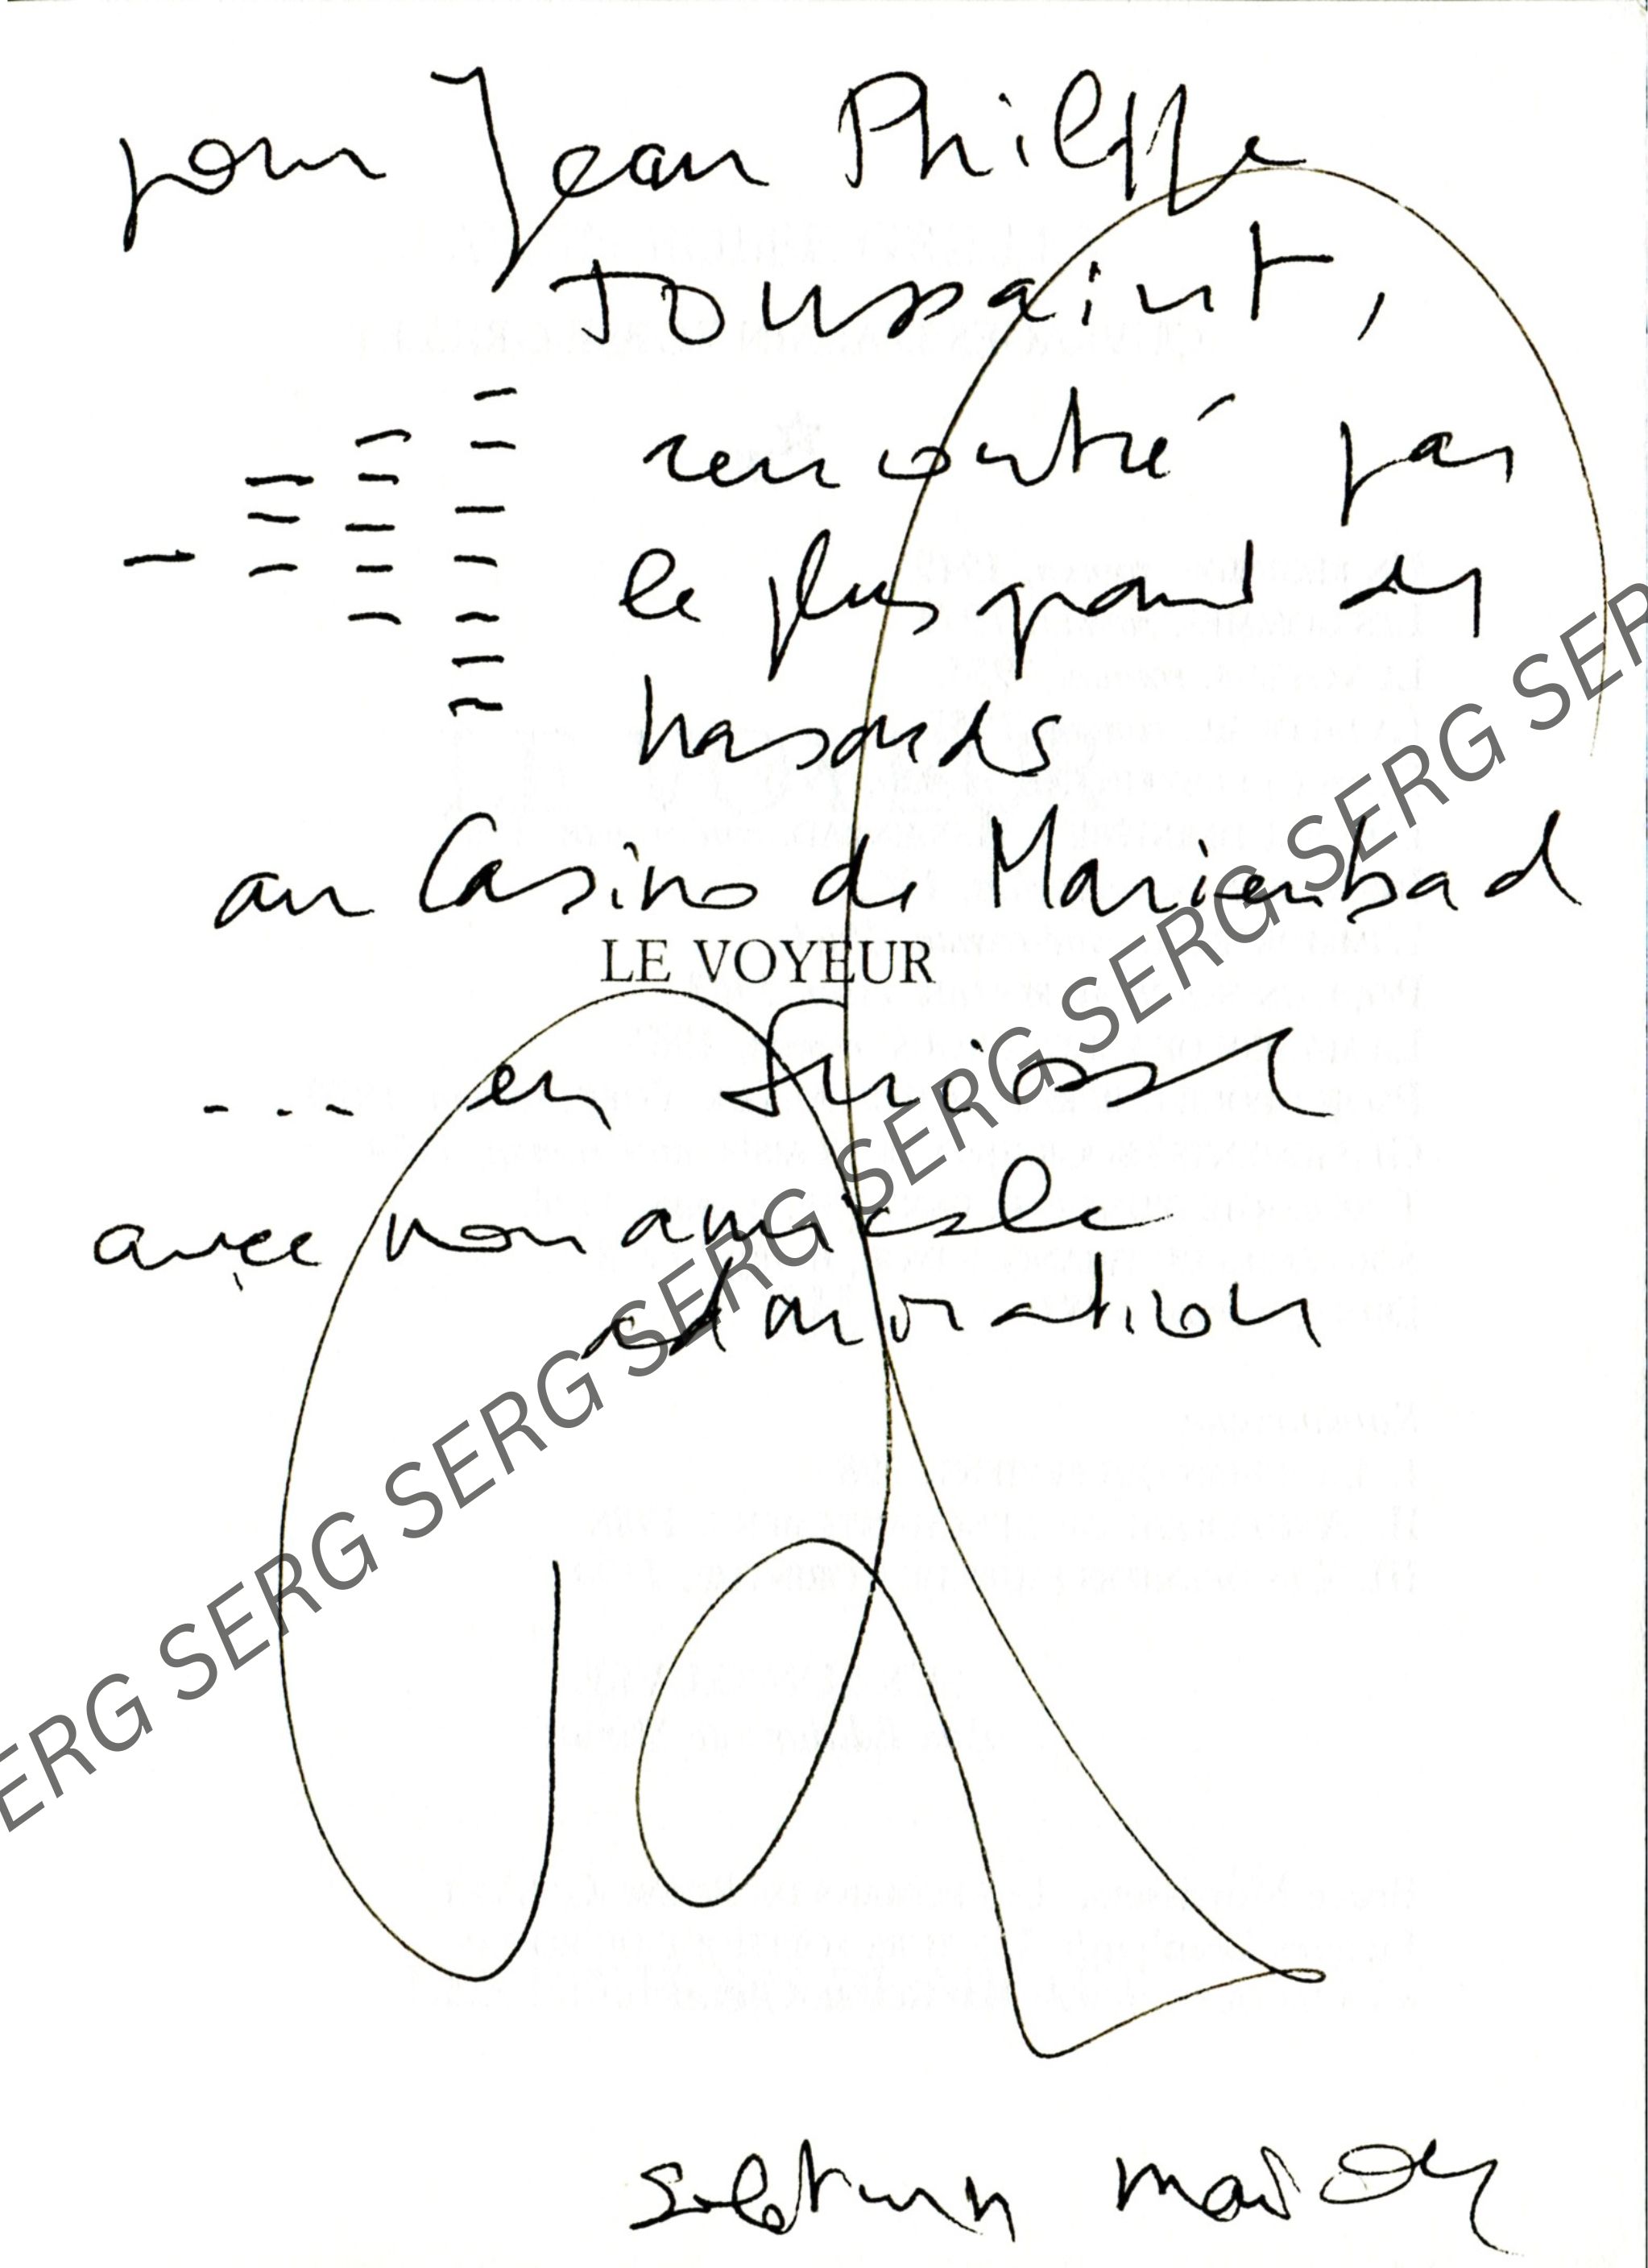 pour Jean Philippe
Toussaint,
rencontré par
le plus grand des
hasards
au Casino de Marienbad
LE VOYEUR
... en Suisse
avec mon amicale
admiration
ERG SERG SERG SERG SERG SERG SERG SER